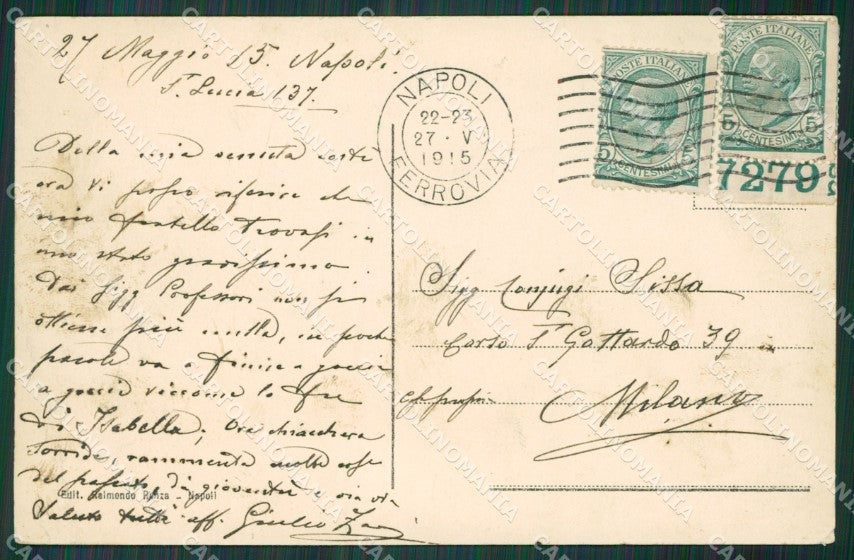 27 Maggio 15. Napoli.
S. Lucia 137.
Della mia venuta costì
ora vi posso riferire che
mio fratello trovasi in
uno stato gravissimo.
Dai Sigg Professori non si
ottiene più nulla, in poche
parole va a finire a goccia
a goccia siccome lo fu
di Isabella; Ora chiacchiera
sorride, rammenta molte cose
del passato, di gioventù e ora vi
Saluto tutti aff. Giulio
Edit. Raimondo Ronza - Napoli
NAPOLI
22-23
27 · V
1915
FERROVIA
POSTE ITALIANE
5 5
CENTESIMI
POSTE ITALIANE
5 5
CENTESIMI
7279
Sigg Conjugi Sissa
Corso S. Gottardo 39
Milano
CARTOLINOMANIA